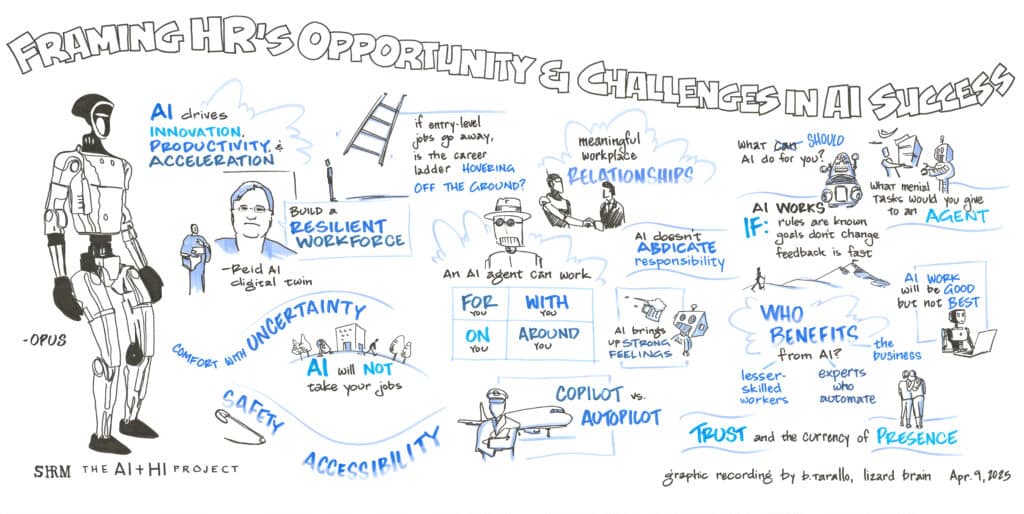 FRAMING HR'S OPPORTUNITY & CHALLENGES IN AI SUCCESS
AI drives
INNOVATION,
PRODUCTIVITY, &
ACCELERATION
BUILD A
RESILIENT
WORKFORCE
-Reid AI
digital twin
-OPUS
COMFORT WITH UNCERTAINTY
AI will NOT
take your jobs
SAFETY
ACCESSIBILITY
SHRM THE AI+HI PROJECT
if entry-level
jobs go away,
is the career
ladder HOVERING
OFF THE GROUND?
meaningful
workplace
RELATIONSHIPS
An AI agent can work
FOR
YOU
WITH
YOU
ON
YOU
AROUND
YOU
AI doesn't
ABDICATE
responsibility
AI brings
UP STRONG
FEELINGS
COPILOT vs.
AUTOPILOT
WHAT can SHOULD
AI do for you?
WHAT menial
TASKS would you give
to an AGENT
AI WORKS
IF: rules are known
goals don't change
feedback is fast
AI WORK
will be GOOD
but not BEST
WHO
BENEFITS
from AI?
the
business
lesser-
skilled
workers
experts
who
automate
TRUST and the currency of PRESENCE
graphic recording by b.tarallo, lizard brain Apr. 9, 2025